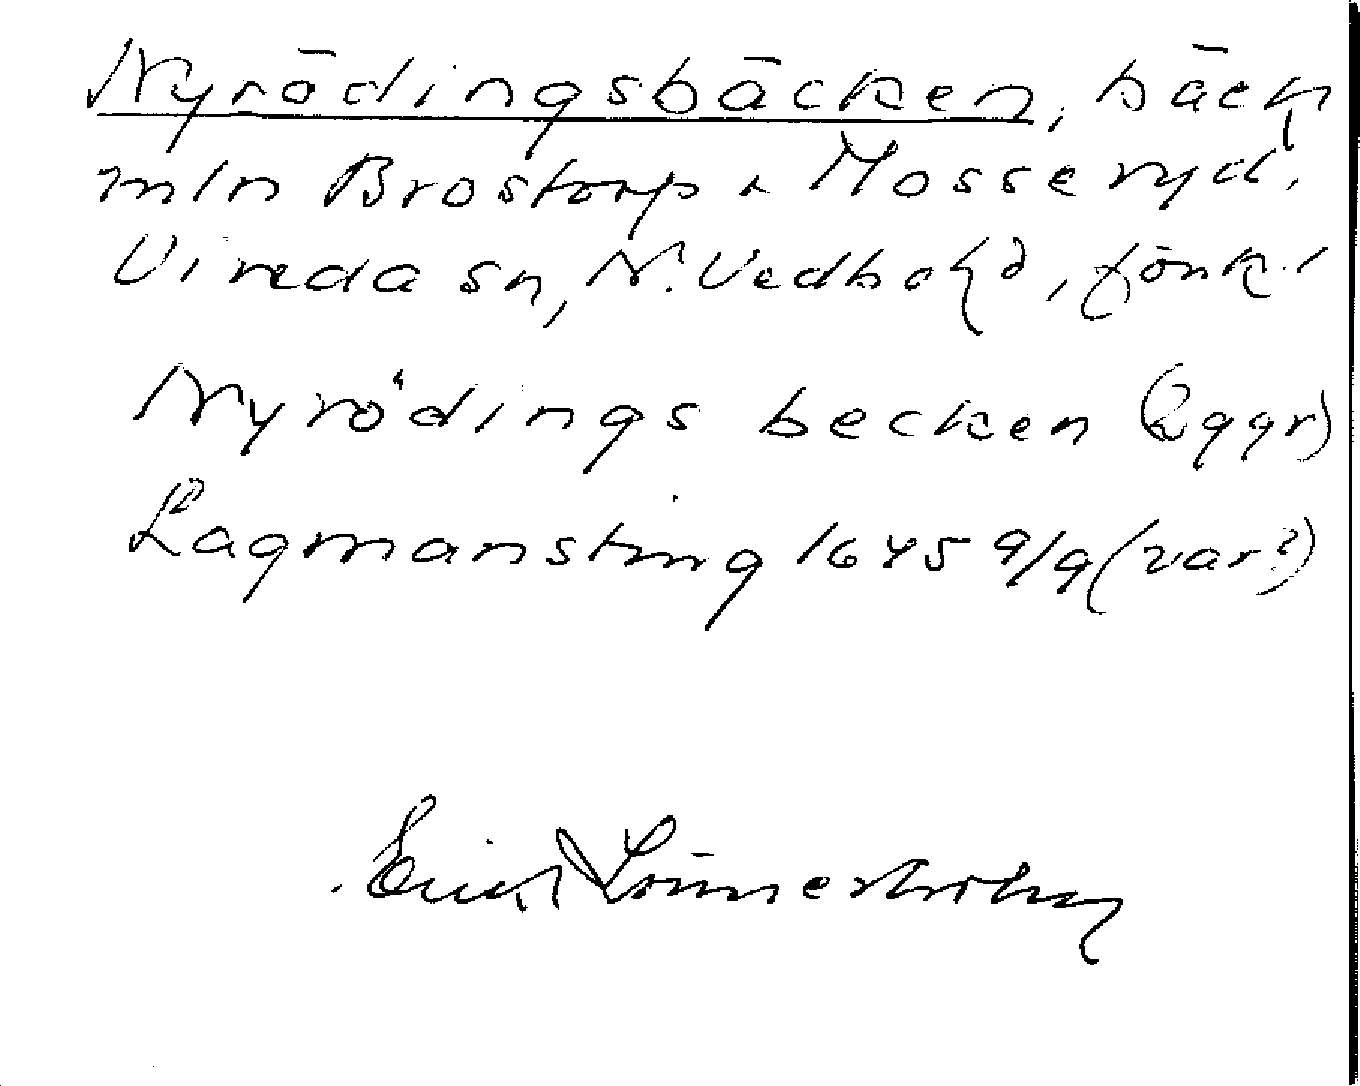 Nyrödingsbäcken, bäck
mln Brostorp o Mosseryd,
Vireda sn, N. Vedbo hd, Jönk. l
Nyrödings becken (2 ggr)
Lagmansting 1645 9/9 (var?)
Erik Lönnerholm